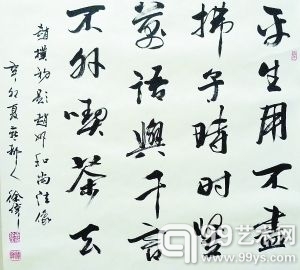 平生用不盡
拂子時时竖
萬語與千言
不外喫茶去
趙樸初題趙州和尚法像
辛卯夏人徐偉
99艺术网
www.99ys.com